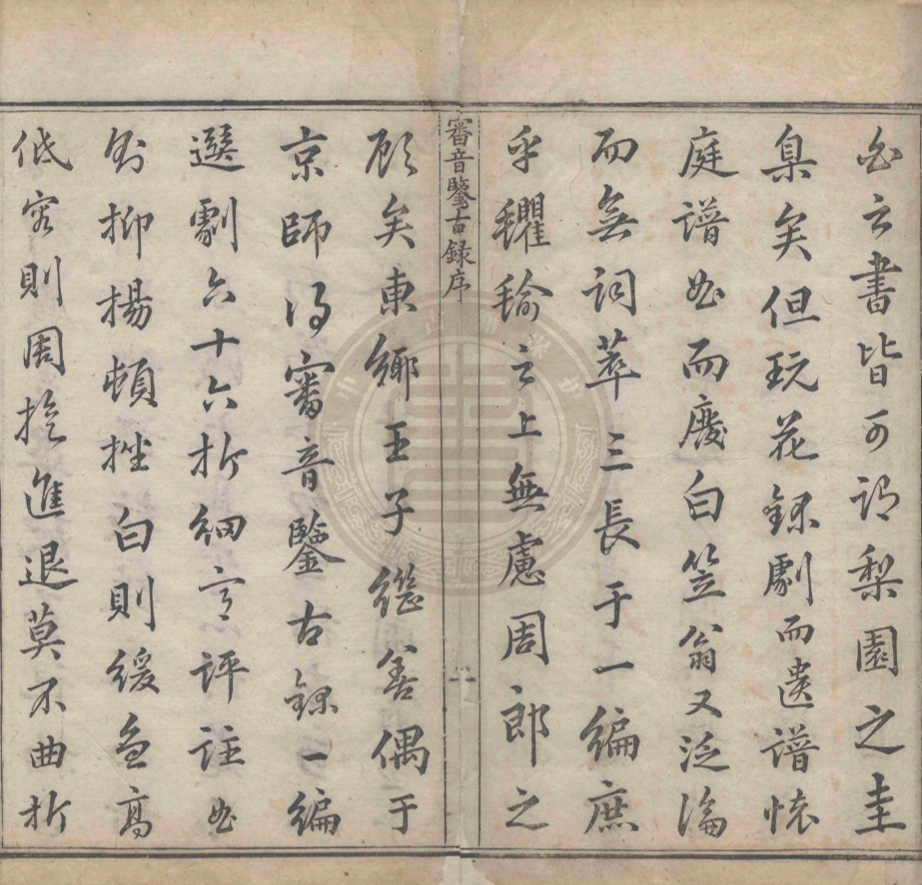 色云書皆可謂梨園之圭
臬矣但玩花錄劇而遺譜怡
庭譜曲而廢白笠翁又泛論
而無詞萃三長于一編庶
乎氍毹之上無慮周郎之
審音鑒古録序
二
顧矣東鄉王子繼善偶于
京師得審音鑒古錄一編
選劇六十六折細言評註曲
則抑揚頓挫白則緩急高
低容則周旋進退莫不曲折